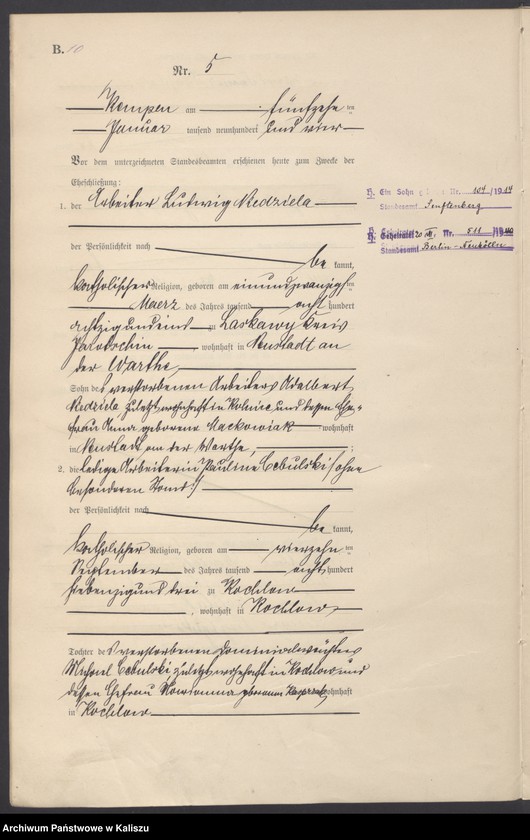 B. 10
Nr. 5
Kempen am fünfzehn ten
Januar tausend neunhundert und vier
Vor dem unterzeichneten Standesbeamten erschienen heute zum Zwecke der
Eheschließung:
1. der Arbeiter Ludwig Niedziela
der Persönlichkeit nach
be kannt,
katholischer Religion, geboren am einundzwanzigsten
Maerz des Jahres tausend acht hundert
achtzigundeins zu Laskawy Kreis
Jarotschin, wohnhaft in Neustadt an
der Warthe,
Sohn des verstorbenen Arbeiters Adalbert
Niedziela zuletzt wohnhaft in und dessen Ehe-
frau Anna geborene Mackowiak wohnhaft
in Neustadt an der Warthe, ;
2. die ledige Arbeiterin Pauline Cebulski (ohne
besonderen Stand)
der Persönlichkeit nach
be kannt,
katholischer Religion, geboren am vierzehn ten
September des Jahres tausend acht hundert
siebenzigunddrei zu Kochlow
, wohnhaft in Kochlow,
Tochter des verstorbenen Dominialwächters
Michael Cebulski zuletzt wohnhaft in Kochlow und
dessen Ehefrau geborenen wohnhaft
in Kochlow
H. Ein Sohn Nr. 104/1914
Standesamt Senftenberg
H. Nr. 511/1940
Standesamt Berlin-Neukölln
Archiwum Państwowe w Kaliszu